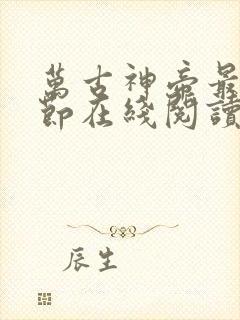 萬古神帝最
節在綫閱讀
辰生